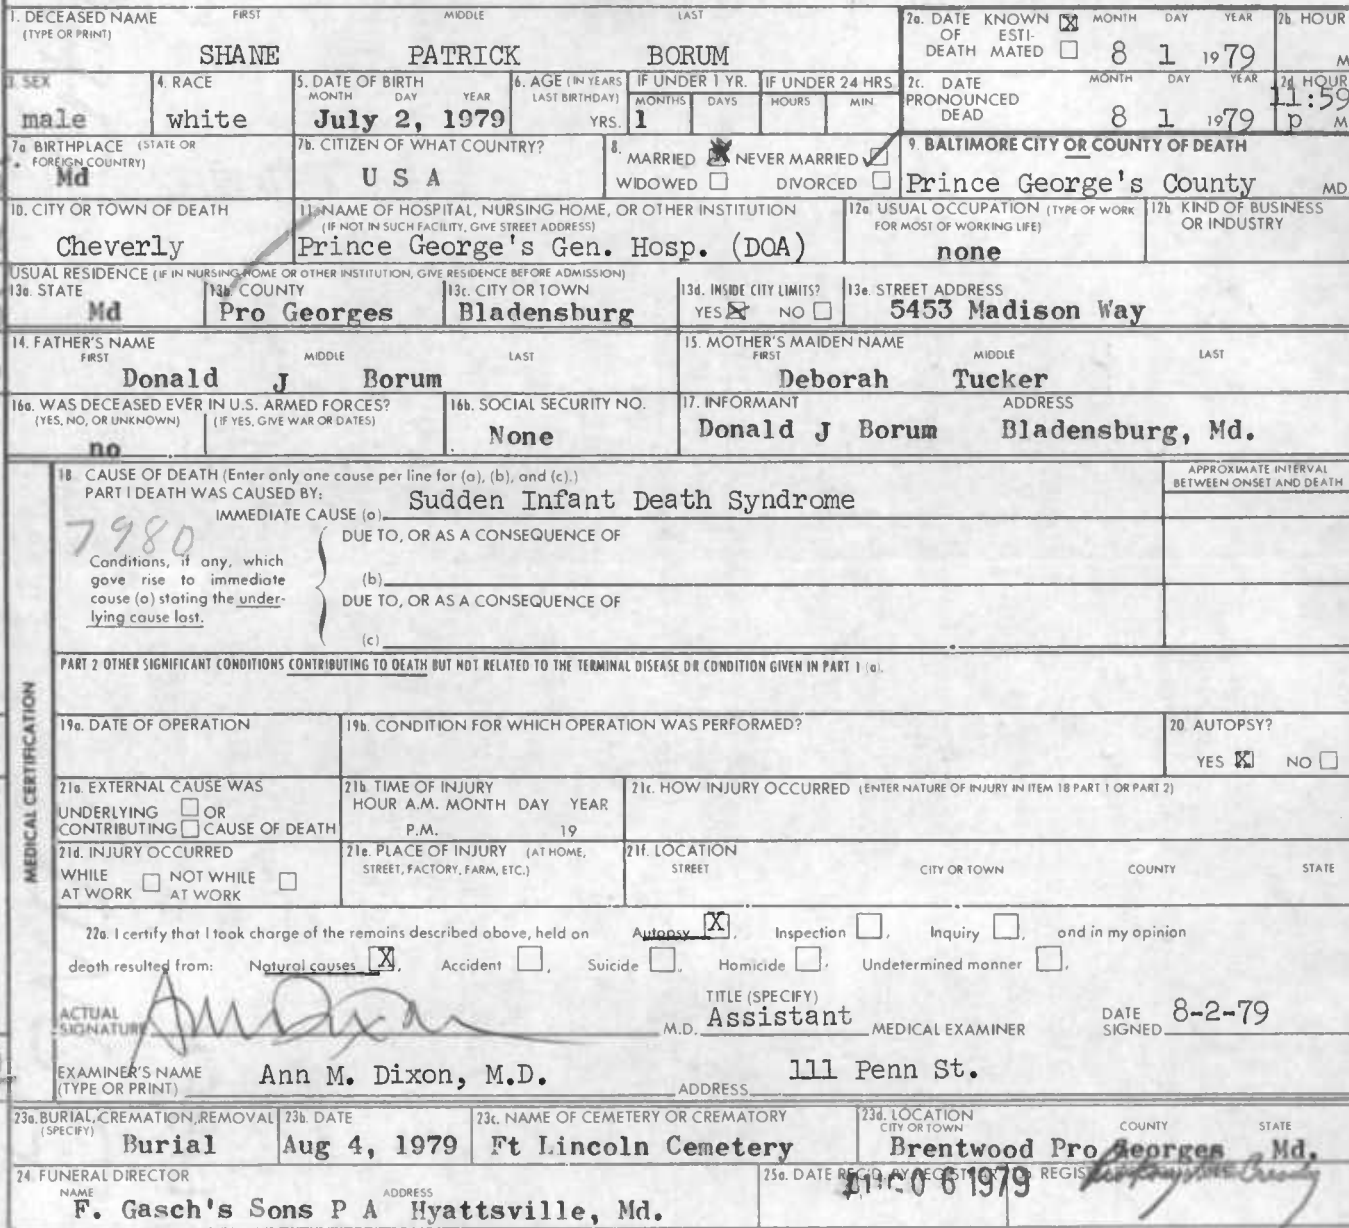 1. DECEASED NAME FIRST MIDDLE LAST
(TYPE OR PRINT)
SHANE PATRICK BORUM
2a. DATE KNOWN X MONTH DAY YEAR 2b. HOUR
OF ESTI-
DEATH MATED 8 1 1979 M
3. SEX male
4. RACE white
5. DATE OF BIRTH
MONTH DAY YEAR
July 2, 1979
6. AGE (IN YEARS LAST BIRTHDAY) YRS.
IF UNDER 1 YR. IF UNDER 24 HRS
MONTHS DAYS HOURS MIN
1
2c. DATE PRONOUNCED DEAD
MONTH DAY YEAR 2d. HOUR
8 1 1979 11:59 p M
7a. BIRTHPLACE (STATE OR FOREIGN COUNTRY)
Md
7b. CITIZEN OF WHAT COUNTRY?
U S A
8. MARRIED NEVER MARRIED
WIDOWED DIVORCED
9. BALTIMORE CITY OR COUNTY OF DEATH
Prince George's County MD
10. CITY OR TOWN OF DEATH
Cheverly
11. NAME OF HOSPITAL, NURSING HOME, OR OTHER INSTITUTION
(IF NOT IN SUCH FACILITY, GIVE STREET ADDRESS)
Prince George's Gen. Hosp. (DOA)
12a. USUAL OCCUPATION (TYPE OF WORK FOR MOST OF WORKING LIFE)
none
12b. KIND OF BUSINESS OR INDUSTRY
USUAL RESIDENCE (IF IN NURSING HOME OR OTHER INSTITUTION, GIVE RESIDENCE BEFORE ADMISSION)
13a. STATE 13b. COUNTY 13c. CITY OR TOWN 13d. INSIDE CITY LIMITS? 13e. STREET ADDRESS
Md Pro Georges Bladensburg YES X NO 5453 Madison Way
14. FATHER'S NAME
FIRST MIDDLE LAST
Donald J Borum
15. MOTHER'S MAIDEN NAME
FIRST MIDDLE LAST
Deborah Tucker
16a. WAS DECEASED EVER IN U.S. ARMED FORCES?
(YES, NO, OR UNKNOWN) (IF YES, GIVE WAR OR DATES)
no
16b. SOCIAL SECURITY NO.
None
17. INFORMANT ADDRESS
Donald J Borum Bladensburg, Md.
MEDICAL CERTIFICATION
18 CAUSE OF DEATH (Enter only one cause per line for (a), (b), and (c).)
APPROXIMATE INTERVAL BETWEEN ONSET AND DEATH
PART I DEATH WAS CAUSED BY:
IMMEDIATE CAUSE (a) Sudden Infant Death Syndrome
7980
DUE TO, OR AS A CONSEQUENCE OF
Conditions, if any, which
gave rise to immediate
cause (a) stating the under-
lying cause last.
(b)
DUE TO, OR AS A CONSEQUENCE OF
(c)
PART 2 OTHER SIGNIFICANT CONDITIONS CONTRIBUTING TO DEATH BUT NOT RELATED TO THE TERMINAL DISEASE OR CONDITION GIVEN IN PART 1 (a).
19a. DATE OF OPERATION
19b. CONDITION FOR WHICH OPERATION WAS PERFORMED?
20. AUTOPSY?
YES X NO
21a. EXTERNAL CAUSE WAS
UNDERLYING OR
CONTRIBUTING CAUSE OF DEATH
21b. TIME OF INJURY
HOUR A.M. MONTH DAY YEAR
P.M. 19
21c. HOW INJURY OCCURRED (ENTER NATURE OF INJURY IN ITEM 18 PART 1 OR PART 2)
21d. INJURY OCCURRED
WHILE AT WORK NOT WHILE AT WORK
21e. PLACE OF INJURY (AT HOME, STREET, FACTORY, FARM, ETC.)
21f. LOCATION
STREET CITY OR TOWN COUNTY STATE
22a. I certify that I took charge of the remains described above, held on Autopsy X, Inspection, Inquiry, and in my opinion
death resulted from: Natural causes X, Accident, Suicide, Homicide, Undetermined manner,
ACTUAL SIGNATURE Ann Dixon M.D.
TITLE (SPECIFY) Assistant MEDICAL EXAMINER
DATE SIGNED 8-2-79
EXAMINER'S NAME (TYPE OR PRINT) Ann M. Dixon, M.D. ADDRESS 111 Penn St.
23a. BURIAL, CREMATION, REMOVAL (SPECIFY)
Burial
23b. DATE
Aug 4, 1979
23c. NAME OF CEMETERY OR CREMATORY
Ft Lincoln Cemetery
23d. LOCATION
CITY OR TOWN COUNTY STATE
Brentwood Pro Georges Md.
24. FUNERAL DIRECTOR
NAME ADDRESS
F. Gasch's Sons P A Hyattsville, Md.
25a. DATE REC'D. BY REGISTRAR
06 1979